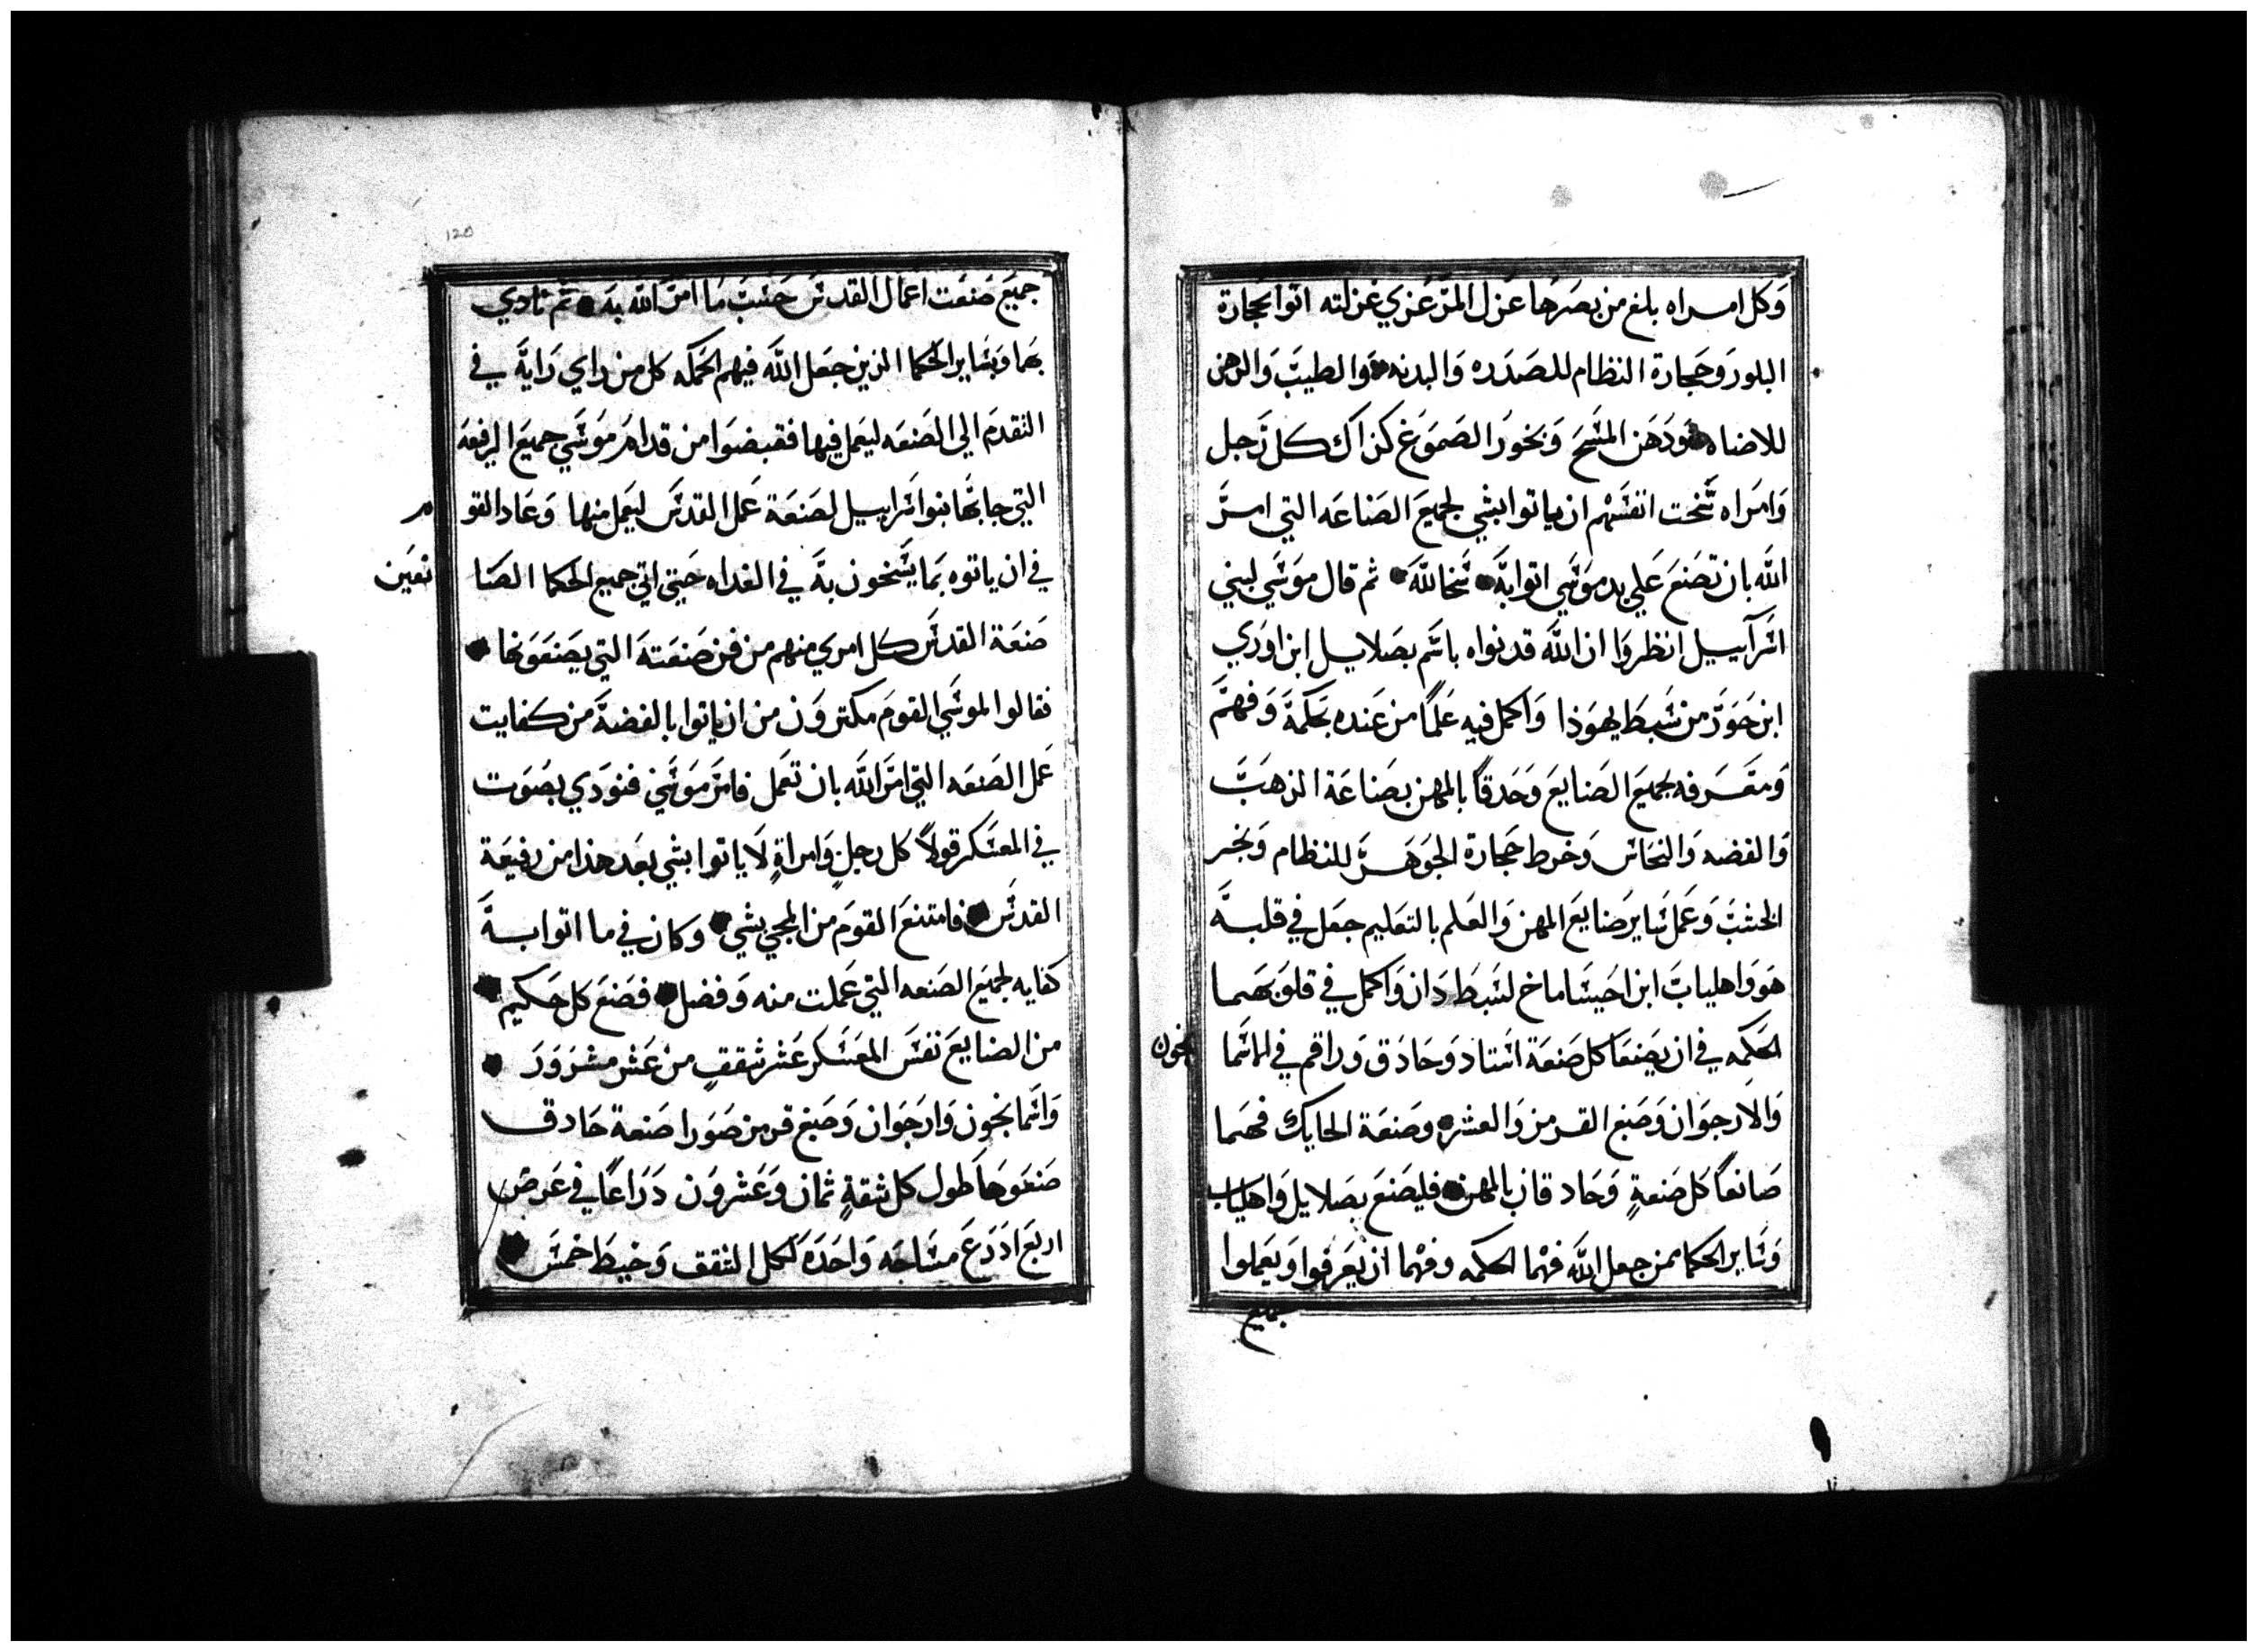 وكل امراه بلغ من بصرها عزل المرعزي غزلته اتوا بحجارة
البلور وحجارة النظام للصدره والبدنه والطيب والدهن
للاضاه ودهن المسح وبخور الصموغ كذاك كل رجل
وامراه سخت انفسهم ان ياتوا بشي لجميع الصناعه التي امر
الله بان تصنع علي يد موسي اتوا به سخا لله ثم قال موسي لبني
اسراييل انظروا ان الله قد نواه باسم بصلايل ابن اوري
ابن حور من سبط يهوذا واكمل فيه علما من عنده بحكمة وفهم
ومعرفه بجميع الصنايع وحدقا بالمهن بصناعة الذهب
والفضه والنحاس وخرط حجارة الجوهر للنظام ونجر
الخشب وعمل ساير صنايع المهن والعلم بالتعليم جعل في قلبه
هو واهلياب ابن احيساماخ لسبط دان واكمل في قلوبهما
الحكمه في ان يصنعا كل صنعة استاد وحادق وراقم في الاسما
نجون
والارجوان وصبغ القرمز والعشر وصنعة الحايك فهما
صانعا كل صنعة وحادقان بالمهن فليصنع بصلايل واهلياب
وساير الحكما ممن جعل الله فهما الحكمه وفهما ان يعرفوا ويعملوا
جميع
120
جميع صنعت اعمال القدس حسب ما امر الله به ثم نادي
بها وبساير الحكما الذين جعل الله فيهم الحكمه كل من راي رايه في
التقدم الي الصنعه ليعمل فيها فقبضوا من قدام موسي جميع الرفعه
التي جا بها بنوا اسراييل لصنعة عمل القدس ليعمل منها وعاد القو م
في ان ياتوه بما يسخون به في الغداه حتي اتي جميع الحكما الصنا نعين
صنعة القدس كل امري منهم من فن صنعته التي يصنعونها
فقالوا لموسي القوم مكترون من ان ياتوا بالفضة من كفايت
عمل الصنعه التي امر الله بان تعمل فامر موسي فنودي بصوت
في المعسكر قولا كل رجل وامراة لا ياتوا بشي بعد هذا من رفيعة
القدس فامتنع القوم من المجي بشي وكان في ما اتوا به
كفايه لجميع الصنعه التي عملت منه وفضل فصنع كل حكيم
من الصنايع نفس المعسكر عشر شقق من عشر مشرور
واسمانجون وارجوان وصبغ قرمز صورا صنعة حادق
صنعوها طول كل شقة ثمان وعشرون دراعا في عرض
اربع اذرع مساحه واحده لكل الشقق وخيط خمس